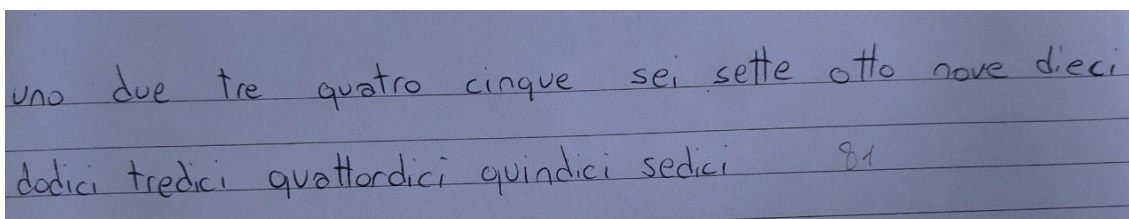 uno due tre quatro cinque sei sette otto nove dieci
dodici tredici quattordici quindici sedici 81